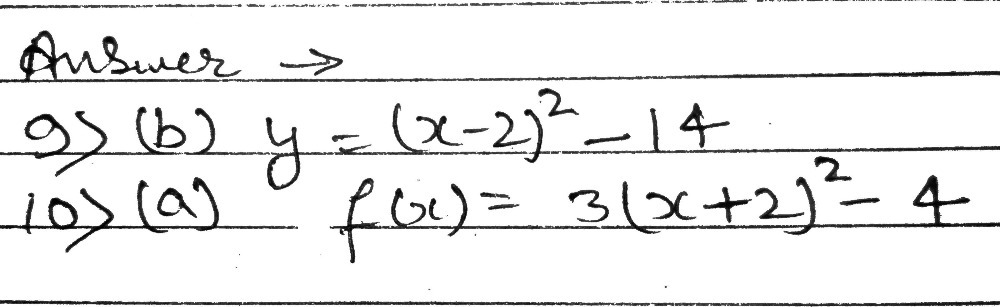 Answer →
9> (b) y = (x-2)² - 14
10> (a) f(x) = 3(x+2)² - 4